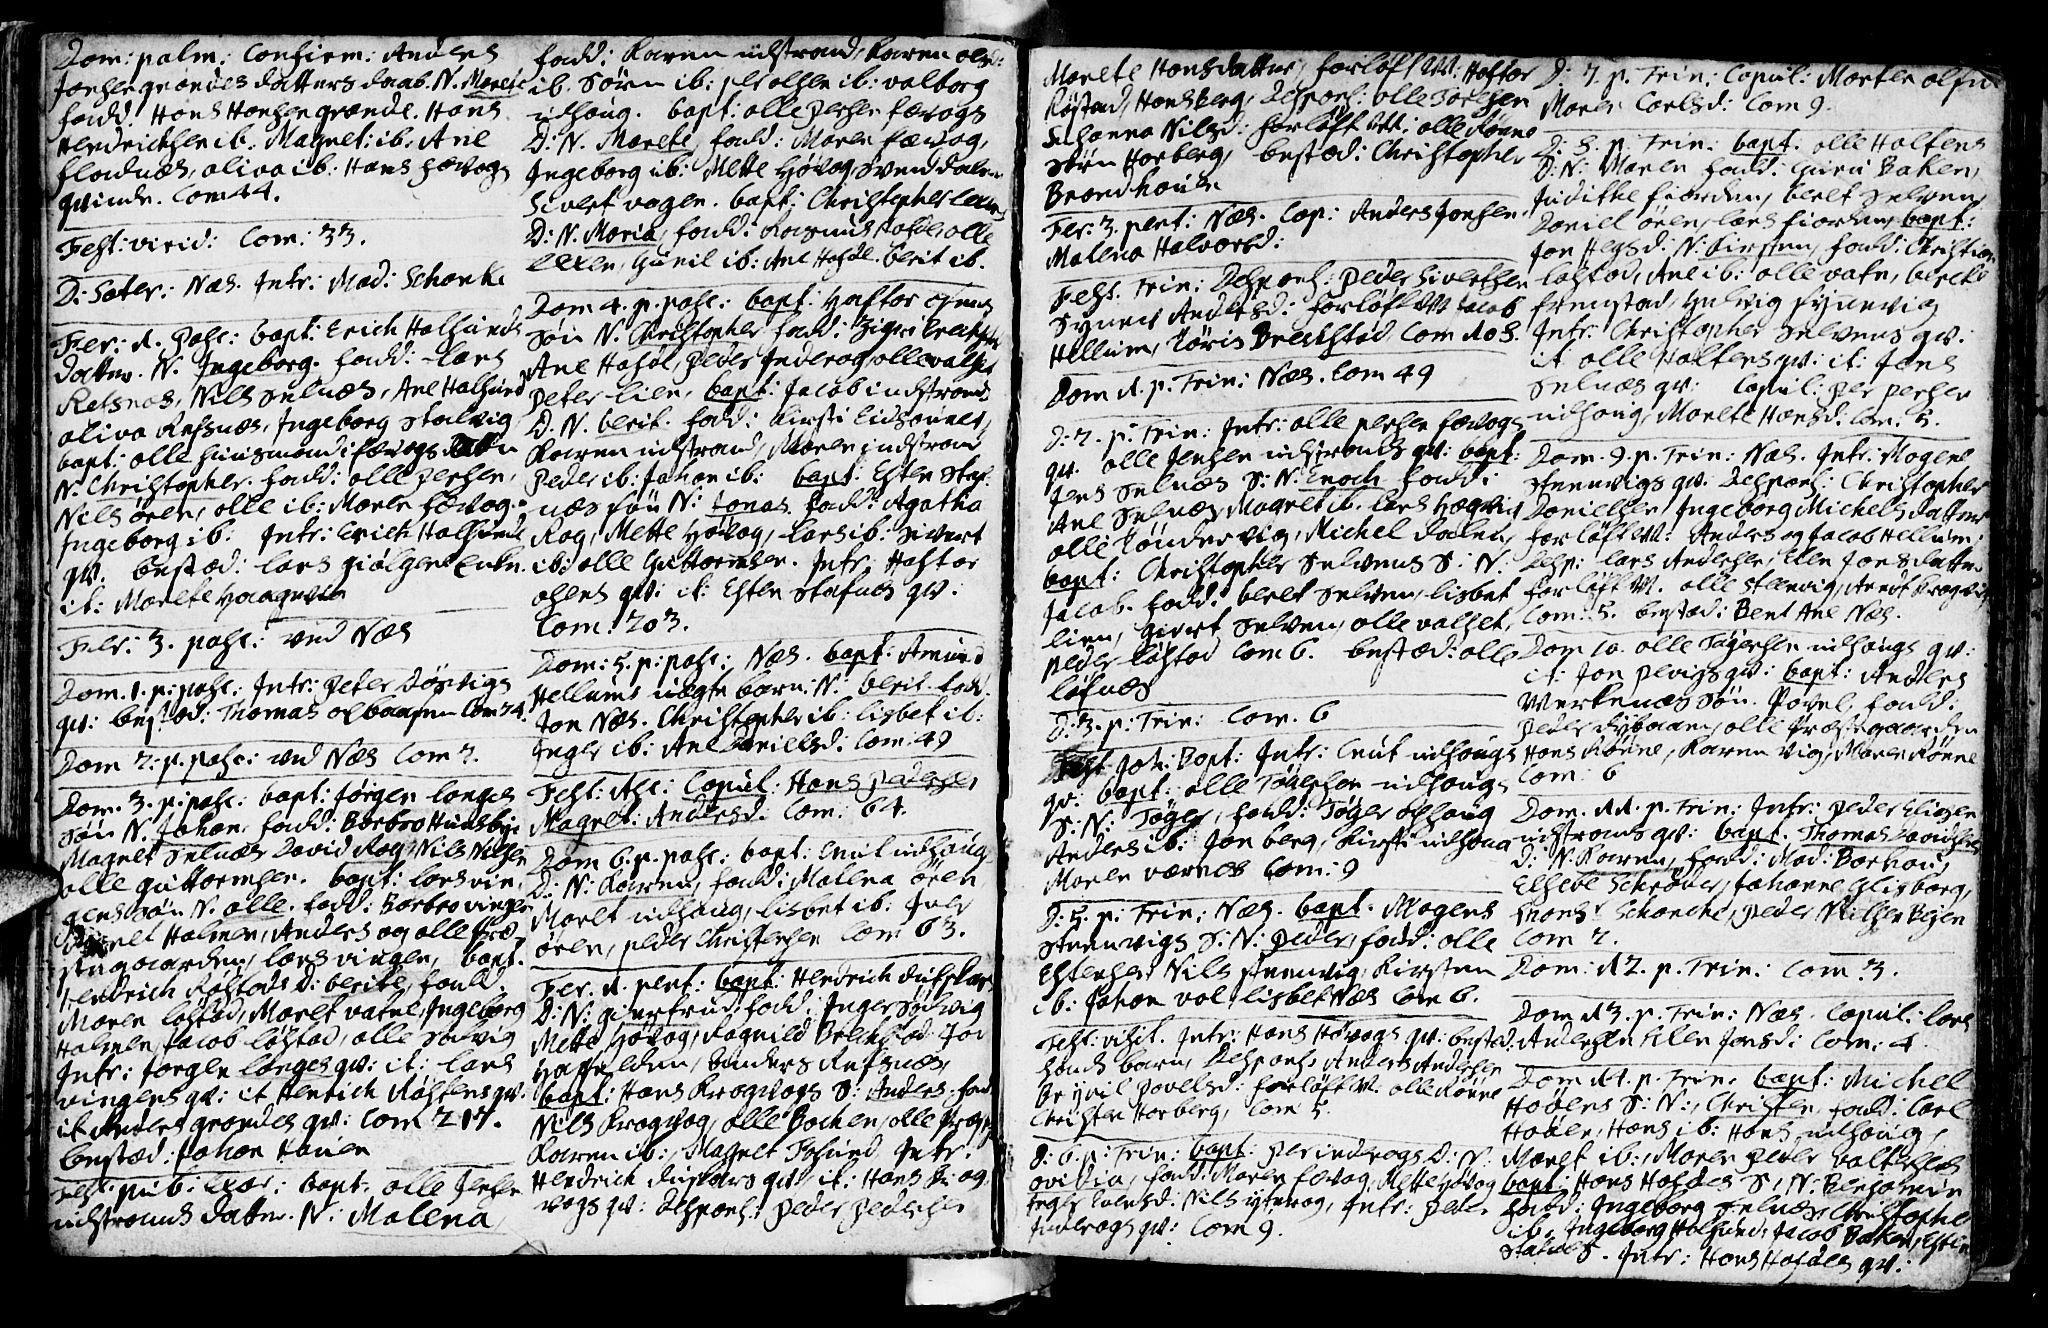 Dom: palm: Confirm: Anders
Jonsen grøndes datters daab. N. Marete
fadd: Hans Hansen grønde. Hans
Hendrichsen ib: Magnet: ib: Ane
fladnæs, oliva ib: Hans fævogs
qvinde. Com 44.
Fest: virid: Com: 33.
D: Sater: Næs. Intr: Mad: Schanke
Fer: 2. pasc: bapt: Erich Halsunds
datter. N. Ingeborg. fadd: Lars
Refsnæs, Nils Selnæs, Ane Halsund
oliva Refsnæs, Ingeborg Stalvig
bapt: olle huusmand i fævogs
N. Christopher. fadd: olle persen,
Nils ören, olle ib: Maren fævog.
Ingeborg ib: Intr: Erich Halsunds
qv. bested: Lars giölgen
it: Marete
Fer: 3. pasc: ved Næs
Dom. 1. p: pasc: Intr: Peter Dösvigs
qv: bested: Thomas Com 74
Dom 2. p. pasc: ved Næs Com 2.
Dom. 3. p: pasc: bapt: Jörgen Langes
Sön N. Johan. fadd: Barbro
Magnet Selnæs David Rag Nils Nilsen
olle guttormsen. bapt: Lars vin,
gens sön N. olle. fadd: Barbro vingen
Holmen, Anders og olle præ,
stegaarden, Lars vingen, bapt.
Hendrich Röstads D: berite, fadd:
Maren Löstad, Maret vatne, Ingeborg
Holmen, Jacob Löstad, olle Sölvig
Intr: Jörgen Langes qv: it: Lars
vingens qv: it Henrich Röstens qv.
it Anders grøndes qv: Com 217.
bested: Johan
Fest: pub: exor: bapt: olle Jensen
indstrands datter. N: Malena,
fadd: Karen indstrand, Karen
ib. Sören ib: per olsen ib: valborg
udhaug. bapt: olle persen fævogs
D: N. Marete, fadd: Maren fævog,
Ingeborg ib: Mette Hövog, Svend dalen
Sivert vagen. bapt: Christopher
D: N. Maria, fadd: Rasmus olle
Lexen, Gunil ib: Ane Hofde. berit ib.
Dom 4. p. pasc: bapt: Haftor
Sön N. Christopher fadd:
Ane Hafde, peder Inderog, olle valset
peter lien, bapt: Jacob indstrand
D. N. berit. fadd: Kirsti
Karen indstrand, Maren indstrand
Peder ib: Johan ib: bapt: Esten Staf,
næs sön N: Jonas. fadd: Agatha
Rag, Mette Hövog, Lars ib: Sivert
ib: olle Guttormsen. Intr, Haftor
qv: it: Esten Stafnæs qv:
Com: 203.
Dom: 5. p: pasc: Næs. bapt: Amund
Hellums uægte barn: N. berit. fadd.
Jon Næs. Christopher ib: Lisbet ib:
Inger ib: Ane Com: 49
Fest: Asc: Copul: Hans Pedersen
Magret: Andersd: Com: 64.
Dom 6. p. pasc: bapt: Cnut udhaug
D: N: Karen, fadd: Malena ören,
Maret udhaug, Lisbet ib: Iver
ören, peder Christensen Com 63.
Fer. 2. pent: bapt: Hendrich
D: N: giertrud: fadd: Inger Sölvig
Mette Hövog, Ragnild Jon
Haffelden, Anders Refsnæs,
bapt: Hans Kragvogs S: Anders. fad
Nils Kragvog, olle Backen, olle
Karen ib:, Magnet Intr.
Hendrich qv it: Hans Krag
vogs qv: Desponf: Peder pedersen
Marete Hansdatter, forlöft Wt: Haftor
Röstad, Hans berg, Desponf: olle
Johanna Nilsd: forlöft Wt: olle Rönne
Sören Horberg, bested: Christopher
Brandhauen
Fer: 3. pent: Næs. Cop: Anders Jonsen.
Malena Halvorsd:
Fest. Trin: Desponf: peder Sivertsen
Synnev Andersd: forlöft Wt Jacob
Hellum, Com 205.
Dom 1. p. Trin: Næs. Com 49
D: 2. p: Trin: Intr: olle persen fævogs
qv. olle Jensen indstrands qv: bapt:
Jens Selnæs S: N: Enoch. fadd:
Ane Selnæs, Magnet ib. Lars Hægvig
olle Sönder vig, Michel Dalen,
bapt: Christopher Selvens S: N:
Jacob. fadd: beret Selven, Lisbet
lien, givert Selven, olle valset,
peder Löstad Com 6. bested: olle
Löfnæs
D: 3. p: Trin: Com. 6
Fest Joh: Bapt: Intr: Cnut udhaugs
qv: bapt: olle Tögersen udhaugs
S: N: Töger, fadd: Töger udhaug
Anders ib: Jon berg, Kirsti udhaug
Maren værnes Com: 9
D: 5. p: Trin: Næs. bapt. Mogens
Steenvigs S: N: peder, fadd: olle
Estensen Nils Steenvig, Kirsten
ib: Johan vol, Lisbet Næs Com 6.
Fest: visit. Intr: Hans Hövogs qv: bested:
hands barn, Desponf. Anders Andersen
povelsd: forlöft Wt. olle Rönne
Christen Horberg, Com 5.
D: 6. p: Trin: bapt: per inderogs D: N:
ovidia, fadd: Maren fævog, Mette Hövog
Inger Nils ytterog, Intr: peder
Inderogs qv: Com 9.
D: 7. p. Trin: Copul: Morten olsen
Maren Carlsd: Com 9.
D: 8. p. Trin: bapt: olle Haltens
D: N: Maren fadd: Guru Baken,
Juditte fiorden, beret Selven,
Daniel ören, Lars fiorden, bapt:
Jon N: Kirsten, fadd: Christian
Löstad, Ane ib: olle vatn, berete
fremstad, Helvig Synnvig
Intr: Christopher Selvens qv:
it olle Haltens qv: it: Jens
Selnæs qv: Copul: per persen
udhaug, Marete Hansd. Com: 5.
Dom. 9. p. Trin: Næs. Intr: Mogens
Steenvigs qv: Desponf: Christopher
Danielsen, Ingeborg Michelsdatter
forlöft Wt: Anders og Jacob Hellum.
desp: Lars Andersen, Ellen Jonsdatter
forlöft Wt. olle Steenvig, Arent
Com: 5. bested: Bent Ane Næs.
Dom 10. olle Tögersen udhaugs qv:
it: Jon qv: bapt: Anders
Werkenæs Sön. Povel, fadd:
Peder, olle Præstegaarden
Hans Rönne, Karen vig, Maren Rönne
Com: 6
Dom. 11. p. Trin: Intr: peder Elissen
indstrands qv: bapt. Thomas Davidsens
D: N: Karen, fadd: Mad: Borhaus,
Elsebe Schröder, Johanne Glisborg,
Schancke, peder Nilsen Bejen
Com 2.
Dom: 12. p. Trin: Com 3.
Dom 13. p. Trin: Næs. Copul: Lars
Andersen Ellen Jonsd: Com: 4.
Dom 14. p. Trin: bapt: Michel
Haöens S: N:, Christen, fadd: Carl
Hauen, Hans ib: Hans udhaug,
Maret ib:, Maren Peder
bapt: Hans Hofdes S, N: Benjamin
fadd: Ingeborg Selnæs, Christopher
ib: Ingeborg Halsund, Jacob Baken, Esten
Stafnes. Intr: Hans Hafdes qv: